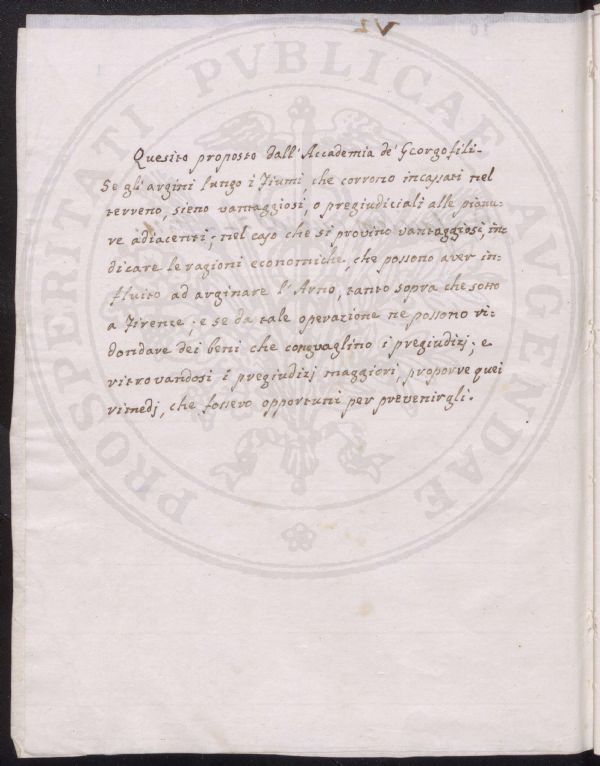 VI
Quesito proposto dall'Accademia de' Georgofili.
Se gli argini lungo i Fiumi, che corrono incassati nel
terreno, sieno vantaggiosi, o pregiudiciali alle pianu-
re adiacenti; nel caso che si provino vantaggiosi, in-
dicare le ragioni economiche, che possono aver in-
fluito ad arginare l'Arno, tanto sopra che sotto
a Firenze; e se da tale operazione ne possono ri-
dondare dei beni che conguaglino i pregiudizj; e
ritrovandosi i pregiudizj maggiori, proporre quei
rimedj, che fossero opportuni per prevenirgli.
PROSPERITATI PVBLICAE AVGENDAE